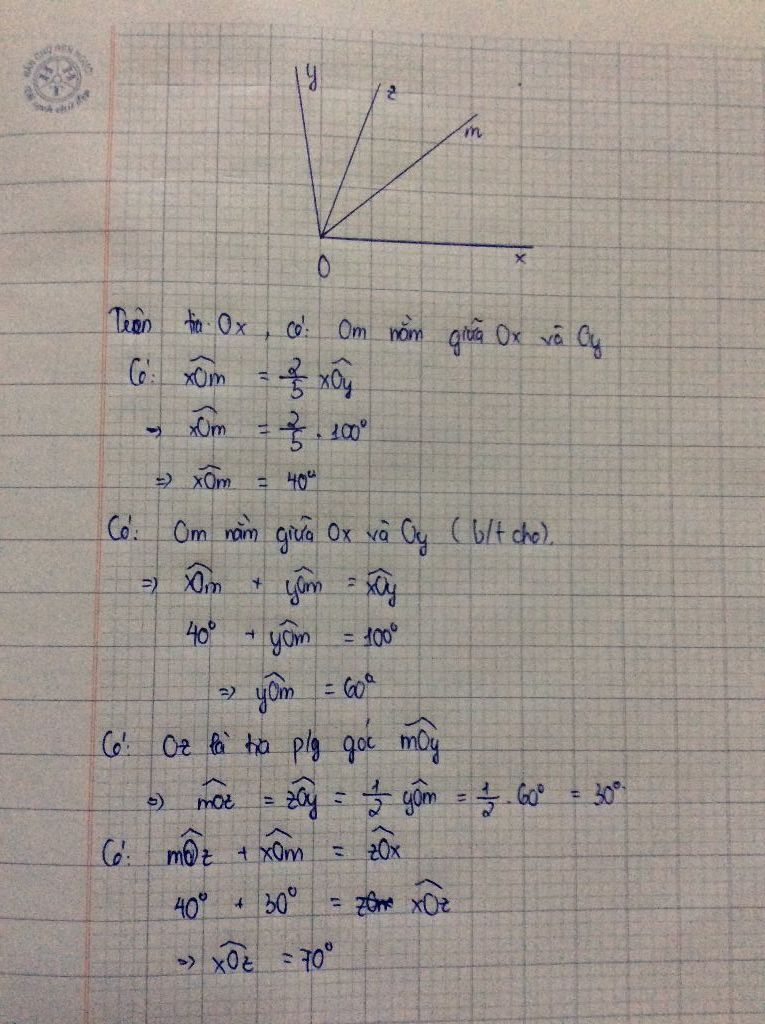 y
z
m
O
x
Trên tia Ox, có: Om nằm giữa Ox và Oy
Có: xOm = 2/5 xOy
=> xOm = 2/5 . 100°
=> xOm = 40°
Có: Om nằm giữa Ox và Oy (b/t cho).
=> xOm + yOm = xOy
40° + yOm = 100°
=> yOm = 60°
Có: Oz là tia p/g góc mOy
=> mOz = zOy = 1/2 yOm = 1/2 . 60° = 30°
Có: mOz + xOm = zOx
40° + 30° = xOz
=> xOz = 70°